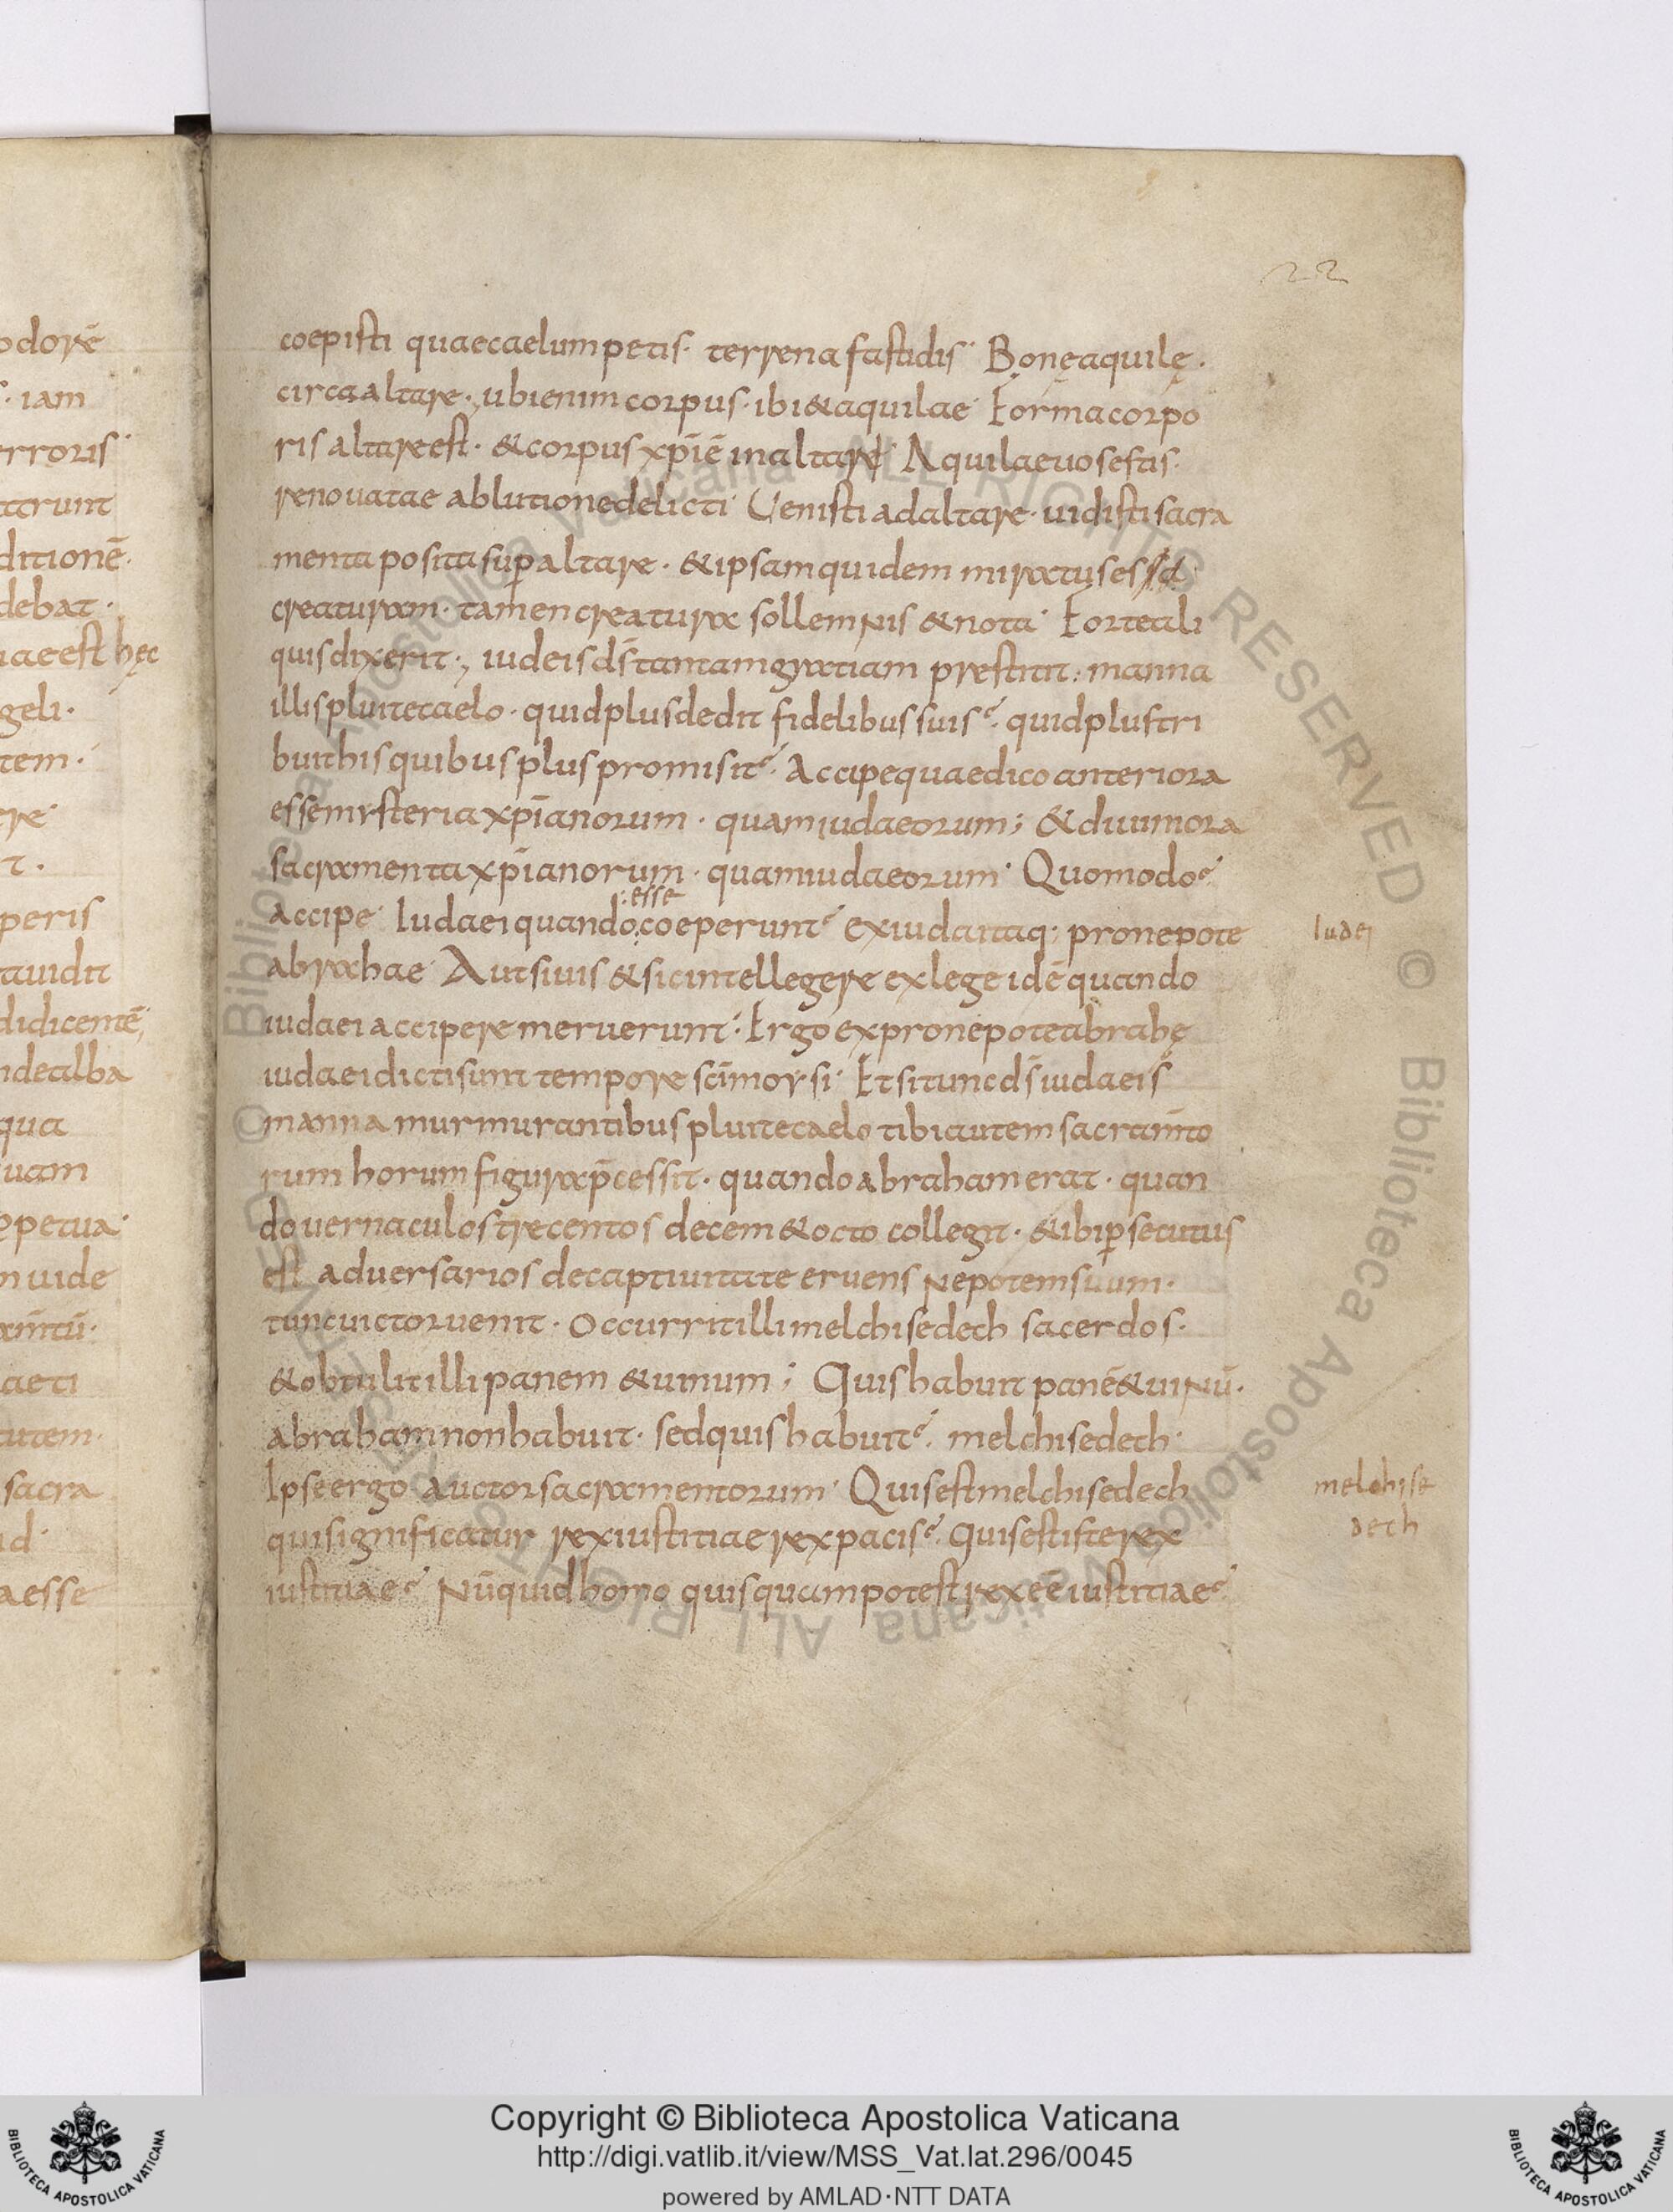 22
coepisti quaecaelumpetis· terrena fastidis· Bonęaquilę·
circa altare· ubienim corpus· ibi&aquilae· Formacorpo
ris altareest· &corpus xp̄iē inaltare Aquilaeuosestis·
renouatae ablutionedelicti· Uenisti adaltare· uidisti sacra
menta posita sup altare· &ipsamquidem miratuses
creaturam· tamen creatura sollemnis &nota· Forteali
quis dixerit·, iudeis d̄s tantamgratiam prestitit: manna
illis pluitecaelo· quidplusdedit fidelibus suis? quidplustri
buit his quibus plus promisit? Accipequaedico anteriora
esse mysteria xp̄ianorum· quamiudaeorum; &diuiniora
sacramenta xp̄ianorum· quamiudaeorum· Quomodo?
:esse
accipe· Iudaei quando coeperunt? exiudaitaq; pronepote
abrahae· Autsiuis &sicintellegere exlege idē quando
iudaei accipere meruerunt· Ergo expronepoteabrahę
iudaei dictisunt tempore sc̄imoysi· Etsitunc d̄s iudaeis
manna murmurantibus pluitecaelo tibiautem sacram̄to
rum horum figura p̄cessit· quando abraham erat· quan
do uernaculos trecentos decem&octo collegit· &ibi psecutus
est aduersarios decaptiuitate eruens nepotemsuum·
tuncuictoruenit· Occurritilli melchisedech sacerdos·
&obtulit illi panem &uinum; Quishabuit panē&uinū·
abraham nonhabuit· sedquis habuit? melchisedech·
Ipseergo auctor sacramentorum· Quisestmelchisedech
quisignificatur rexiustitiae rexpacis? Quisestisterex
iustitiae? Nūquidhomo quisquampotest rex eē iustitiae?
Iudei
melchise
dech
odorē
· iam
rroris·
tarunt
ditionē·
debat·
aeest hęc
geli·
tem·
re·
t·
peris
tauidit
didicentē;
dealba
qua
uam
petua·
uide
aeti
utem·
sacra
id·
aesse
Copyright © Biblioteca Apostolica Vaticana
http://digi.vatlib.it/view/MSS_Vat.lat.296/0045
powered by AMLAD·NTT DATA
BIBLIOTECA APOSTOLICA VATICANA
BIBLIOTECA APOSTOLICA VATICANA
© Biblioteca Apostolica Vaticana ALL RIGHTS RESERVED © Biblioteca Apostolica Vaticana ALL RIGHTS RESERVED